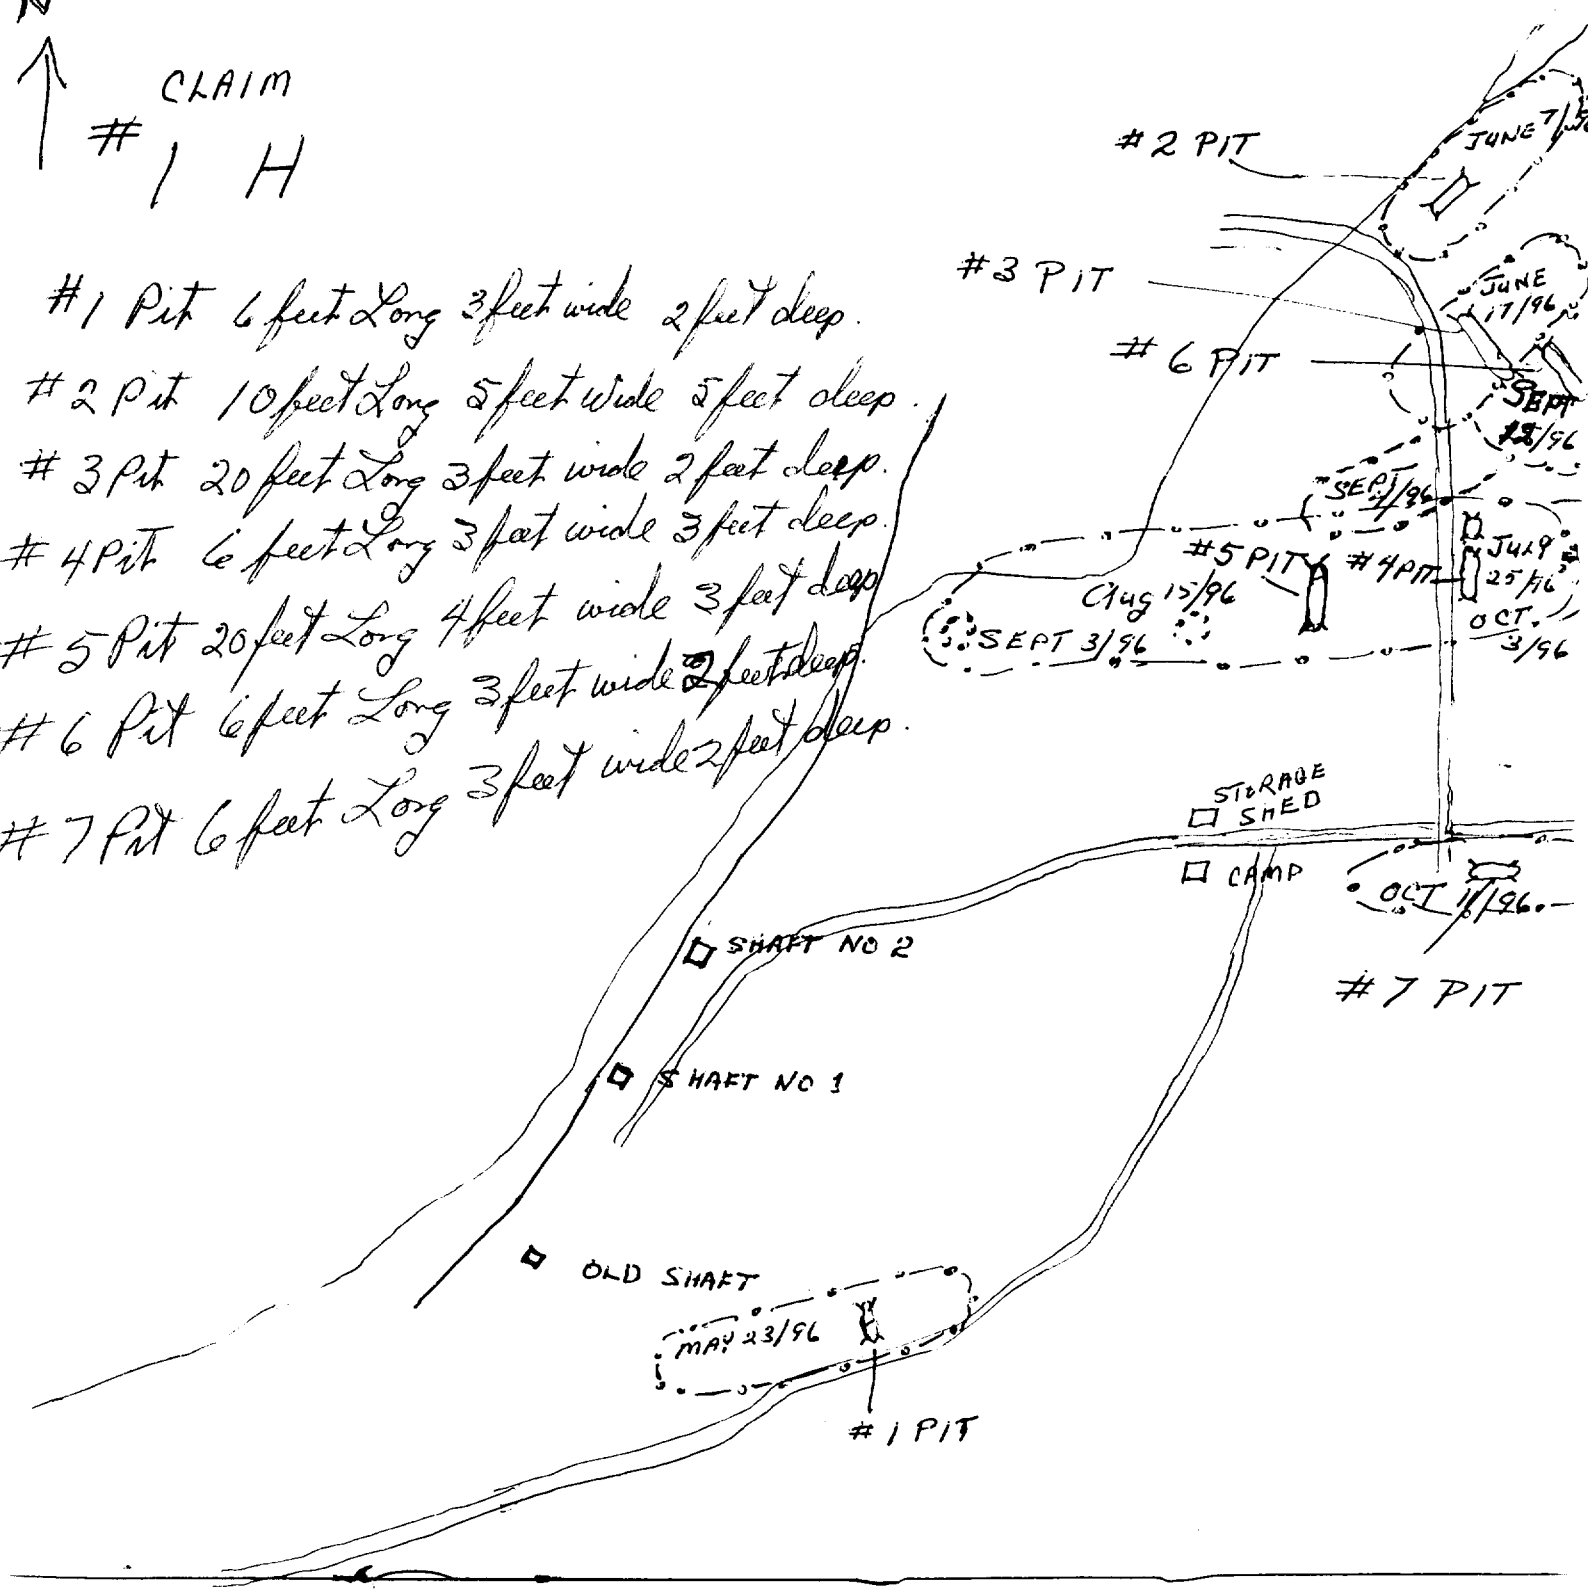 N
CLAIM
# 1 H
#1 Pit 6 feet Long 3 feet wide 2 feet deep.
#2 Pit 10 feet Long 5 feet wide 5 feet deep.
#3 Pit 20 feet Long 3 feet wide 2 feet deep.
#4 Pit 6 feet Long 3 feet wide 3 feet deep.
#5 Pit 20 feet Long 4 feet wide 3 feet deep
#6 Pit 6 feet Long 3 feet wide 2 feet deep.
#7 Pit 6 feet Long 3 feet wide 2 feet deep.
#2 PIT
JUNE 7/
#3 PIT
JUNE
17/96
#6 PIT
SEPT
/96
SEPT /96
#5 PIT
#4 PIT
JULY
25/96
Aug 15/96
OCT.
3/96
SEPT 3/96
STORAGE
SHED
CAMP
OCT 11/96
#7 PIT
SHAFT NO 2
SHAFT NO 1
OLD SHAFT
MAY 23/96
#1 PIT